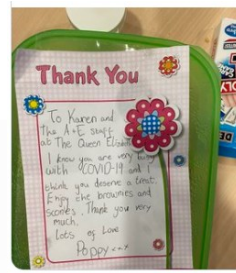 Thank You
To Karen and
the A+E staff
at The Queen Elizabeth
I know you are very busy
with COVID-19 and I
think you deserve a treat.
Enjoy the brownies and
scones. Thank you very
much.
Lots of Love
Poppy xxx